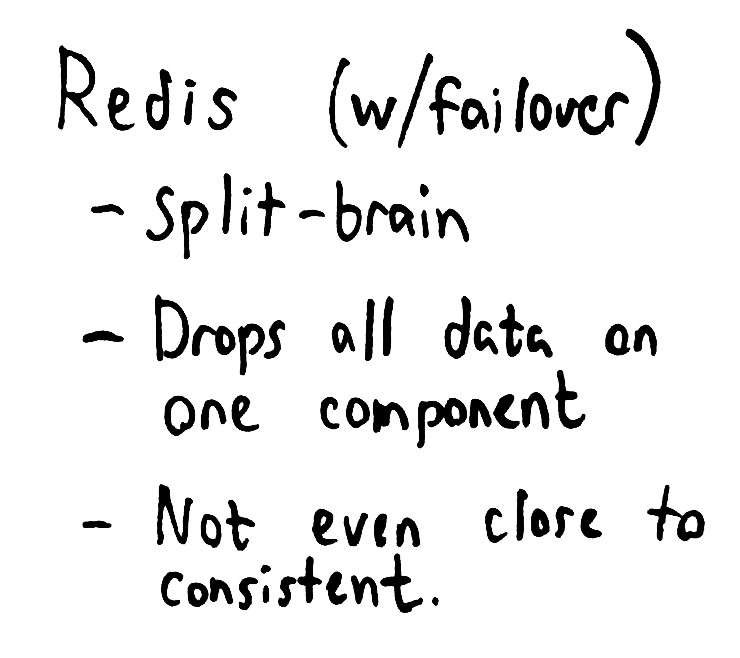 Redis (w/failover)
- Split-brain
- Drops all data on
one component
- Not even close to
consistent.